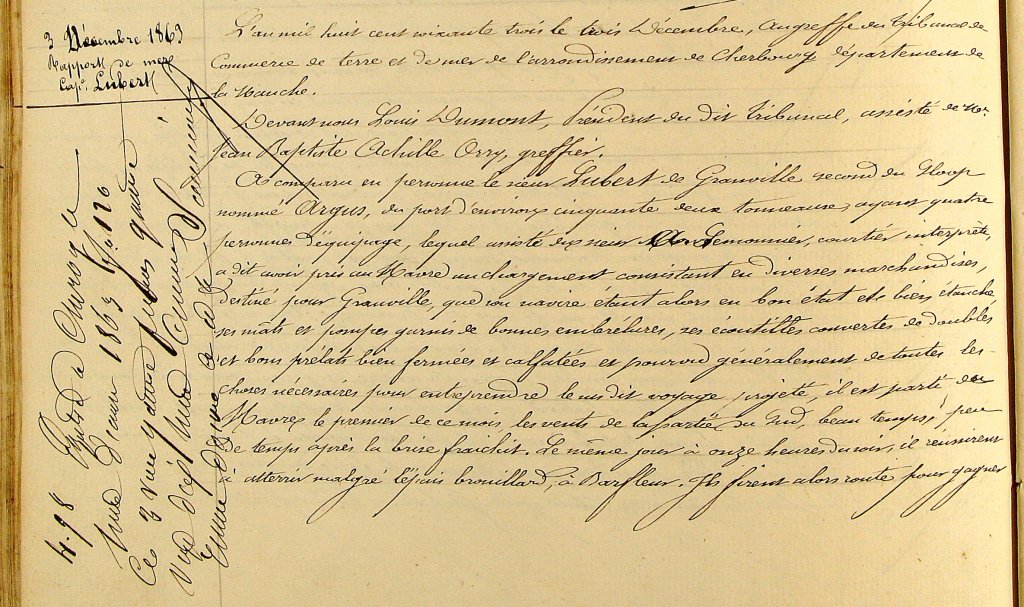 3 Décembre 1863
Rapport de mer
Cap.e Lubert
L'an mil huit cent soixante trois le trois Décembre, au greffe du Tribunal de
Commerce de terre et de mer de l'arrondissement de Cherbourg département de
la Manche.
Devant nous Louis Dumont, Président du dit Tribunal, assisté de Me
Jean Baptiste Achille Orry, greffier.
A comparu en personne le sieur Lubert de Granville second du Sloop
nommé Argus, du port d'environ cinquante deux tonneaux, ayant quatre
personnes d'équipage, lequel assisté du sieur Lemonnier, courtier interprète,
a dit avoir pris au Havre un chargement consistant en diverses marchandises,
destiné pour Granville, que son navire étant alors en bon état et bien étanche
ses mâts et pompes garnis de bonnes embrélures, ses écoutilles couvertes de doubles
et bons prélats bien fermées et calfatées et pourvu généralement de toutes les
choses nécessaires pour entreprendre le susdit voyage projeté, il est parti du
Havre le premier de ce mois, les vents de la partie du Sud, beau temps, peu
de temps après la brise fraîchit. Le même jour à onze heures du soir, il réussirent
à atterrir malgré l'épais brouillard, à Barfleur. Ils firent alors route pour gagner
4.98
1863 fo 126
Ce 3